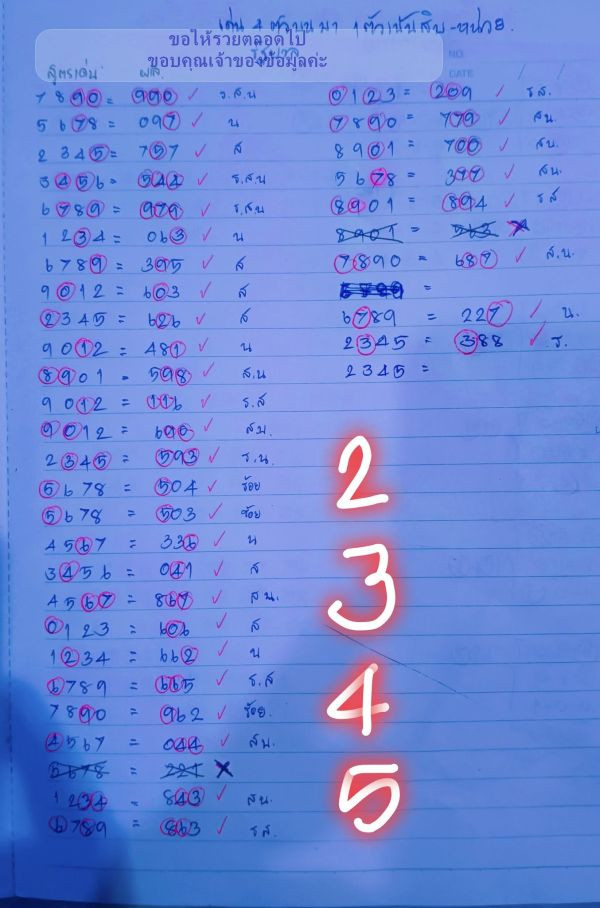 เด่น 4 ตัวบน มา 1 ตัวเน้นสิบ-หน่วย.
ขอให้รวยตลอดไป
ขอบคุณเจ้าของข้อมูลค่ะ
NO.
DATE / /
สูตรเด่น ผล.
7890 = 990 ✓ ร.ส.น
5678 = 097 ✓ น
2345 = 757 ✓ ส
3456 = 544 ✓ ร.ส.น
6789 = 979 ✓ ร.ส.น
1234 = 063 ✓ น
6789 = 395 ✓ ส
9012 = 603 ✓ ส
2345 = 626 ✓ ส
9012 = 481 ✓ น
8901 = 598 ✓ ส.น
9012 = 116 ✓ ร.ส
9012 = 690 ✓ สน.
2345 = 593 ✓ ร.น.
5678 = 504 ✓ ร้อย
5678 = 503 ✓ ร้อย
4567 = 336 ✓ น
3456 = 041 ✓ ส
4567 = 867 ✓ สน.
0123 = 606 ✓ ส
1234 = 662 ✓ น
6789 = 665 ✓ ร.ส
7890 = 962 ✓ ร้อย.
4567 = 044 ✓ สน.
5678 = 221 ✗
1234 = 843 ✓ สน.
6789 = 863 ✓ รส.
0123 = 209 ✓ รส.
7890 = 779 ✓ สน.
8901 = 700 ✓ สน.
5678 = 377 ✓ สน.
8901 = 894 ✓ รส
8901 = 563 ✗
7890 = 687 ✓ ส.น.
=
6789 = 227 ✓ น.
2345 = 388 ✓ ร.
2345 =
2
3
4
5